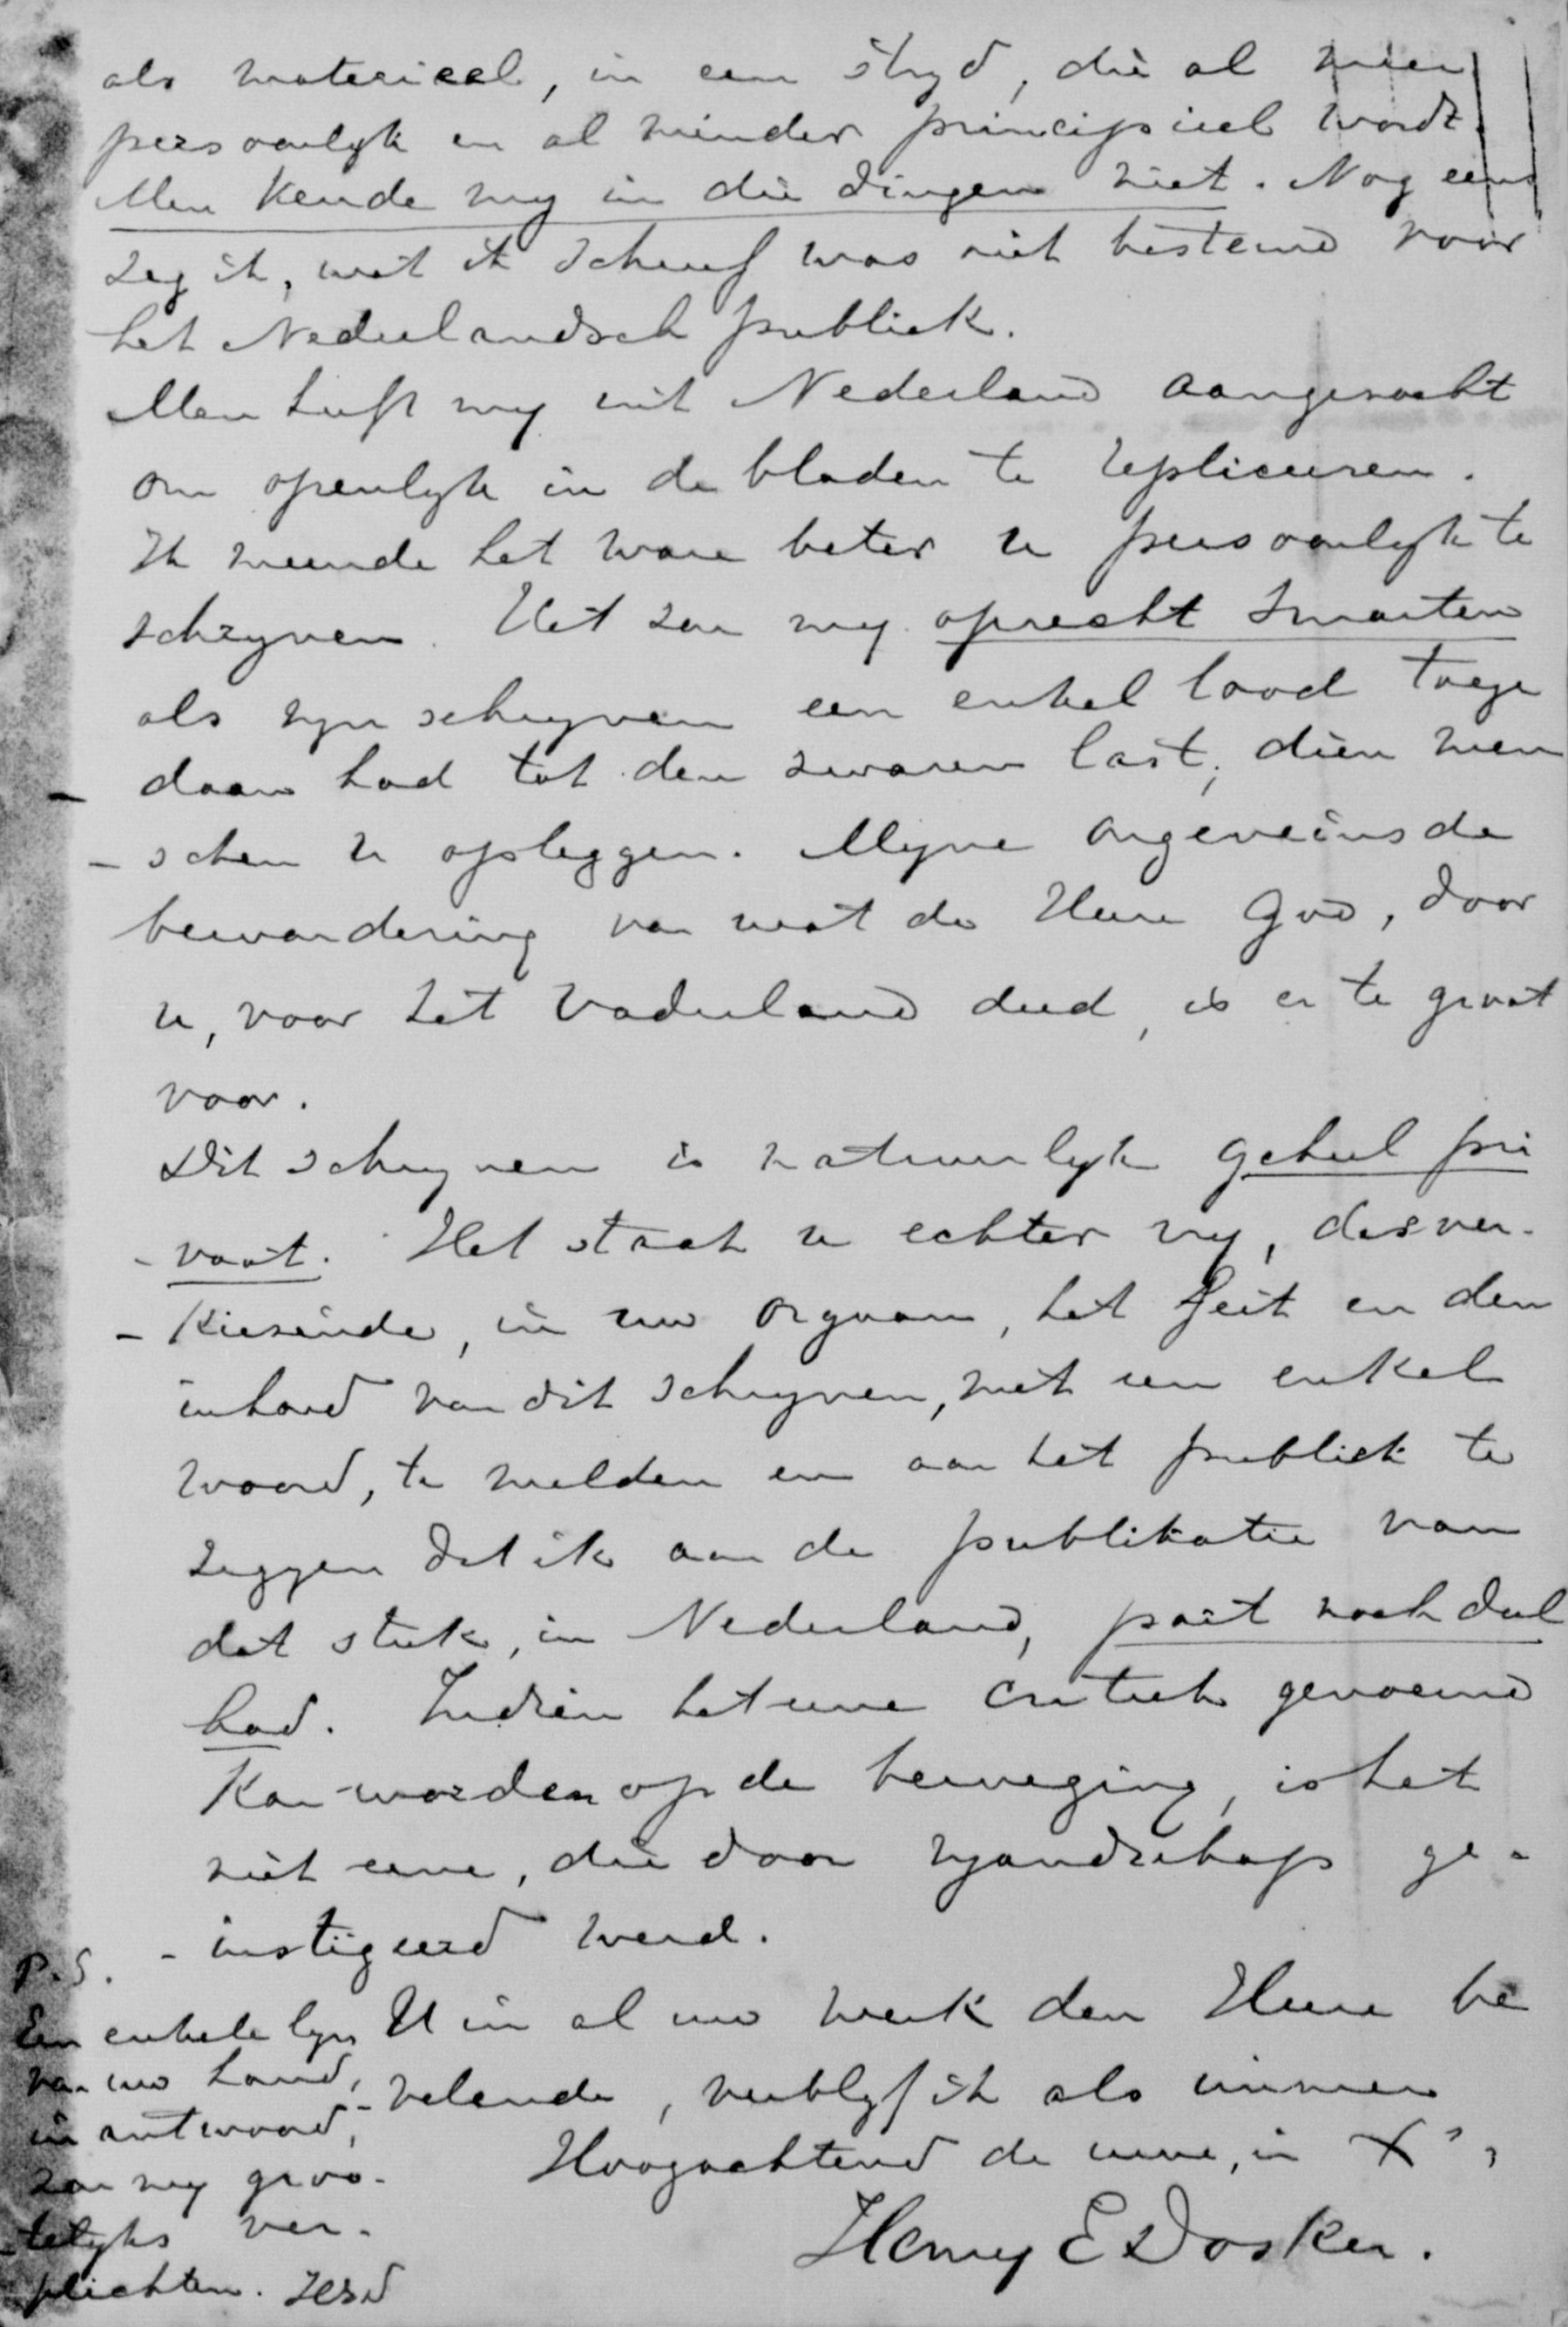 als materieel, in een stryd, die al meer
persoonlyk en al minder principieel wordt.
Men kende my in die dingen niet. Nog eens
zeg ik, wat ik schreef was niet bestemd voor
het Nederlandsch publiek.
Men heeft my uit Nederland aangezocht
om openlyk in de bladen te repliceeren.
Ik meende het ware beter u persoonlyk te
schryven. Het zou my oprecht smarten
als myn schryven een enkel lood toege
daan had tot den zwaren last, dien men
- schen u opleggen. Myne ongeveinsde
bewondering van wat de Heere God, door
u, voor het Vaderland deed, is er te groot
voor.
Dit schryven is natuurlyk geheel pri
- vaat. Het staat u echter vry, desver-
- kiesende, in uw orgaan, het feit en den
inhoud van dit schryven, met een enkel
woord, te melden en aan het publiek te
zeggen dat ik aan de publikatie van
dat stuk, in Nederland, part noch deel
had. Indien het eene critiek genoemd
kan worden op de beweging, is het
niet eene, die door vyandschap ge-
- instigeerd werd.
U in al uw werk den Heere be
- velende, verblyf ik als immer
Hoogachtend de uwe, in X's,
Henry E Dosker.
P.S.
Een enkele lyn
van uw hand,
in antwoord,
zou my groo-
- telyks ver-
plichten. HED